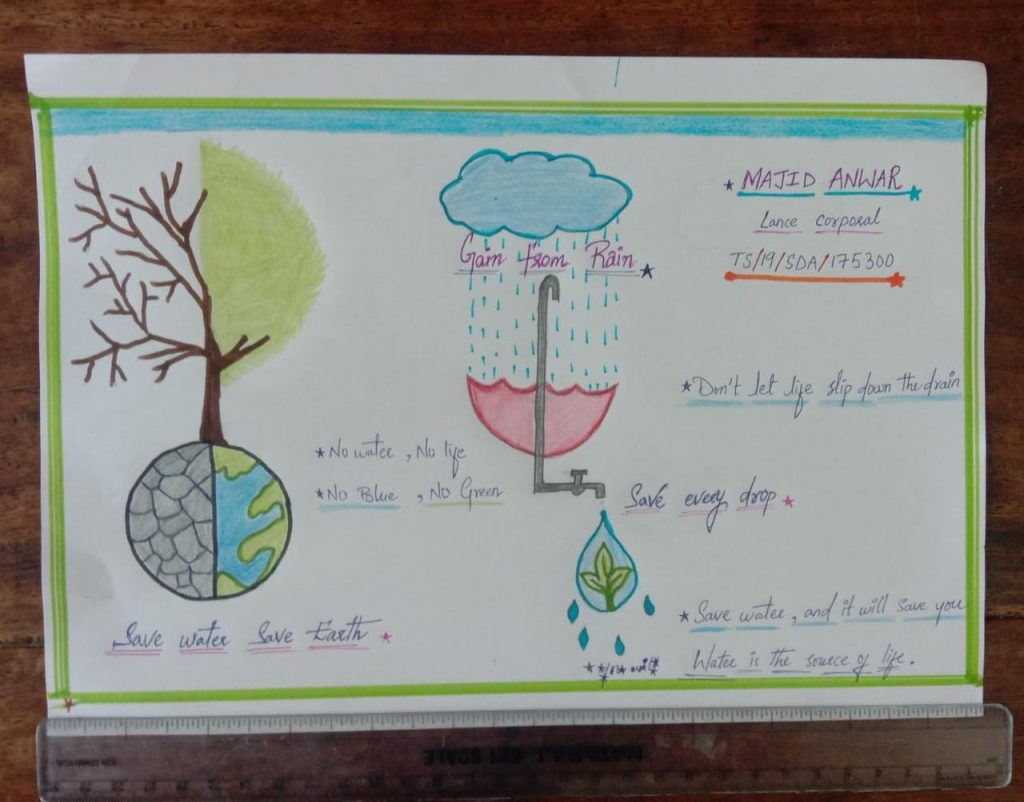 MAJID ANWAR
Lance corporal
TS/19/SDA/175300
Gain from Rain
Don't let life slip down the drain
No water, No life
No Blue, No Green
Save every drop
Save water Save Earth
Save water, and it will save you
Water is the source of life.